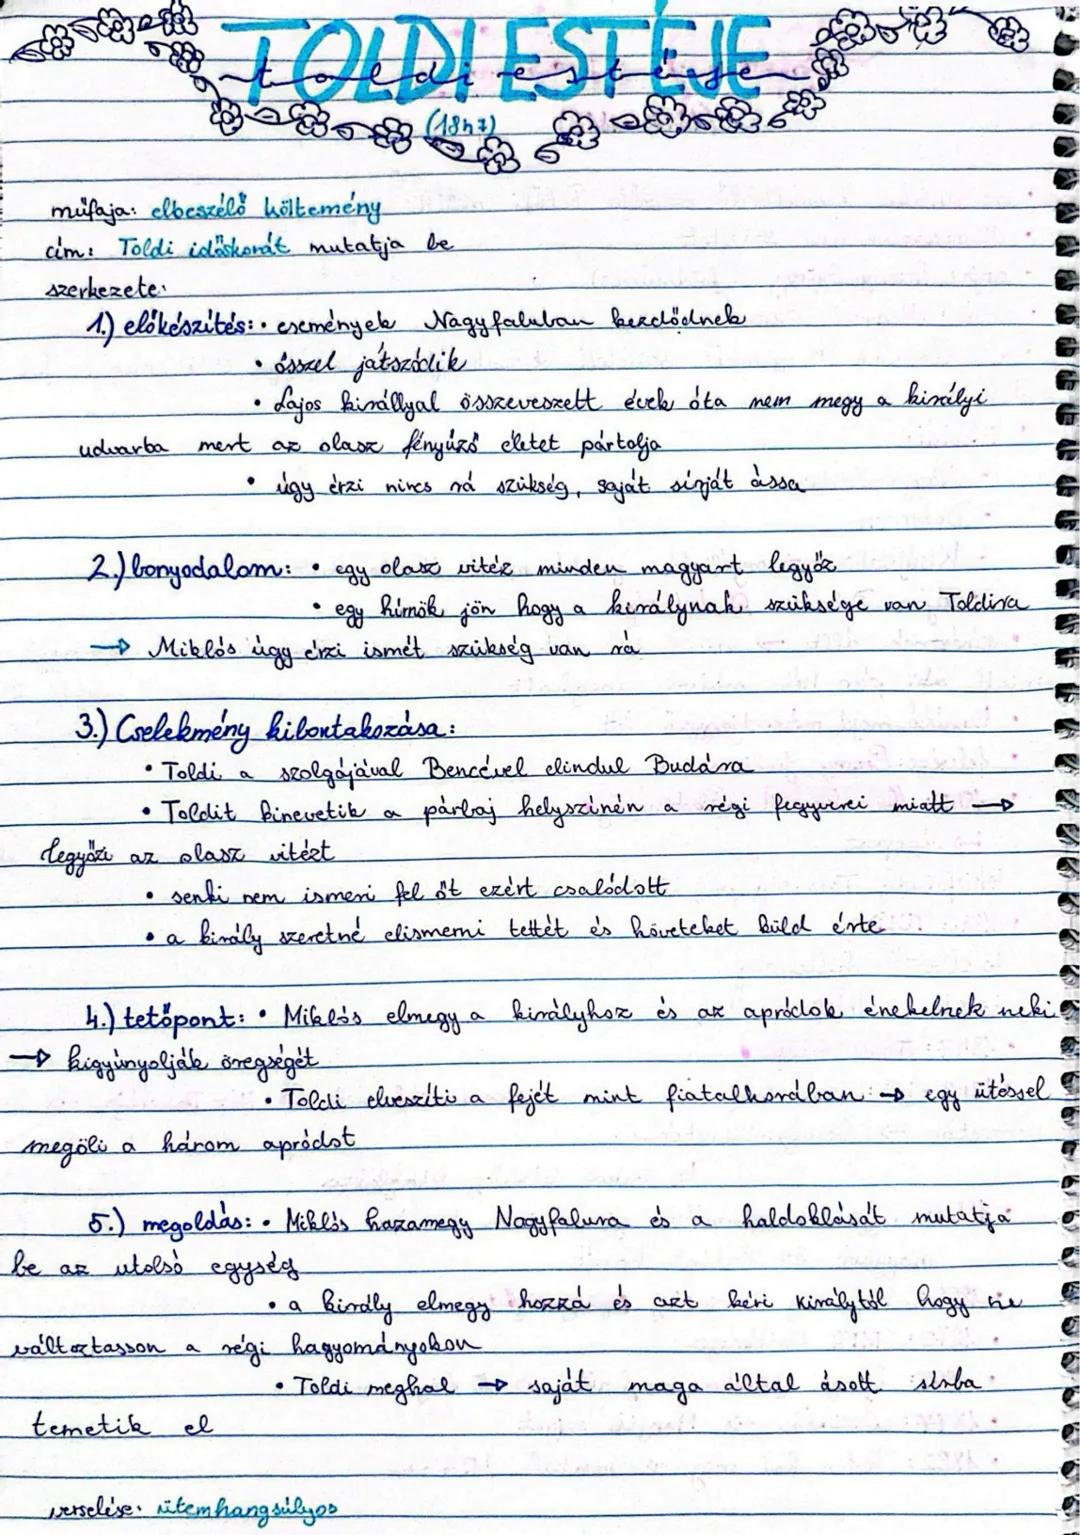 TOLDI ESTÉJE
toldi estéje
(1847)
műfaja: elbeszélő költemény
cím: Toldi időskorát mutatja be
szerkezete:
1.) előkészítés: • események Nagyfaluban kezdődnek
• ősszel játszódik
• Lajos királlyal összeveszett évek óta nem megy a királyi
udvarba mert az olasz fényűző életet pártolja
• úgy érzi nincs rá szükség, saját sírját ássa
2.) bonyodalom: • egy olasz vitéz minden magyart legyőz
• egy hírnök jön hogy a királynak szüksége van Toldira
→ Miklós úgy érzi ismét szükség van rá
3.) Cselekmény kibontakozása:
• Toldi a szolgájával Bencével elindul Budára
• Toldit kinevetik a párbaj helyszínén a régi fegyverei miatt →
legyőzi az olasz vitézt
• senki nem ismeri fel őt ezért csalódott
• a király szeretné elismerni tettét és követeket küld érte
4.) tetőpont: • Miklós elmegy a királyhoz és az apródok énekelnek neki
→ kigyúnyolják öregségét
• Toldi elveszíti a fejét mint fiatalkorában → egy ütéssel
megöli a három apródot
5.) megoldás: • Miklós hazamegy Nagyfalura és a haldoklását mutatja
be az utolsó egység
• a király elmegy hozzá és azt kéri királytól hogy ne
változtasson a régi hagyományokon
• Toldi meghal → saját maga által ásott sírba
temetik el
verselése: ütemhangsúlyos